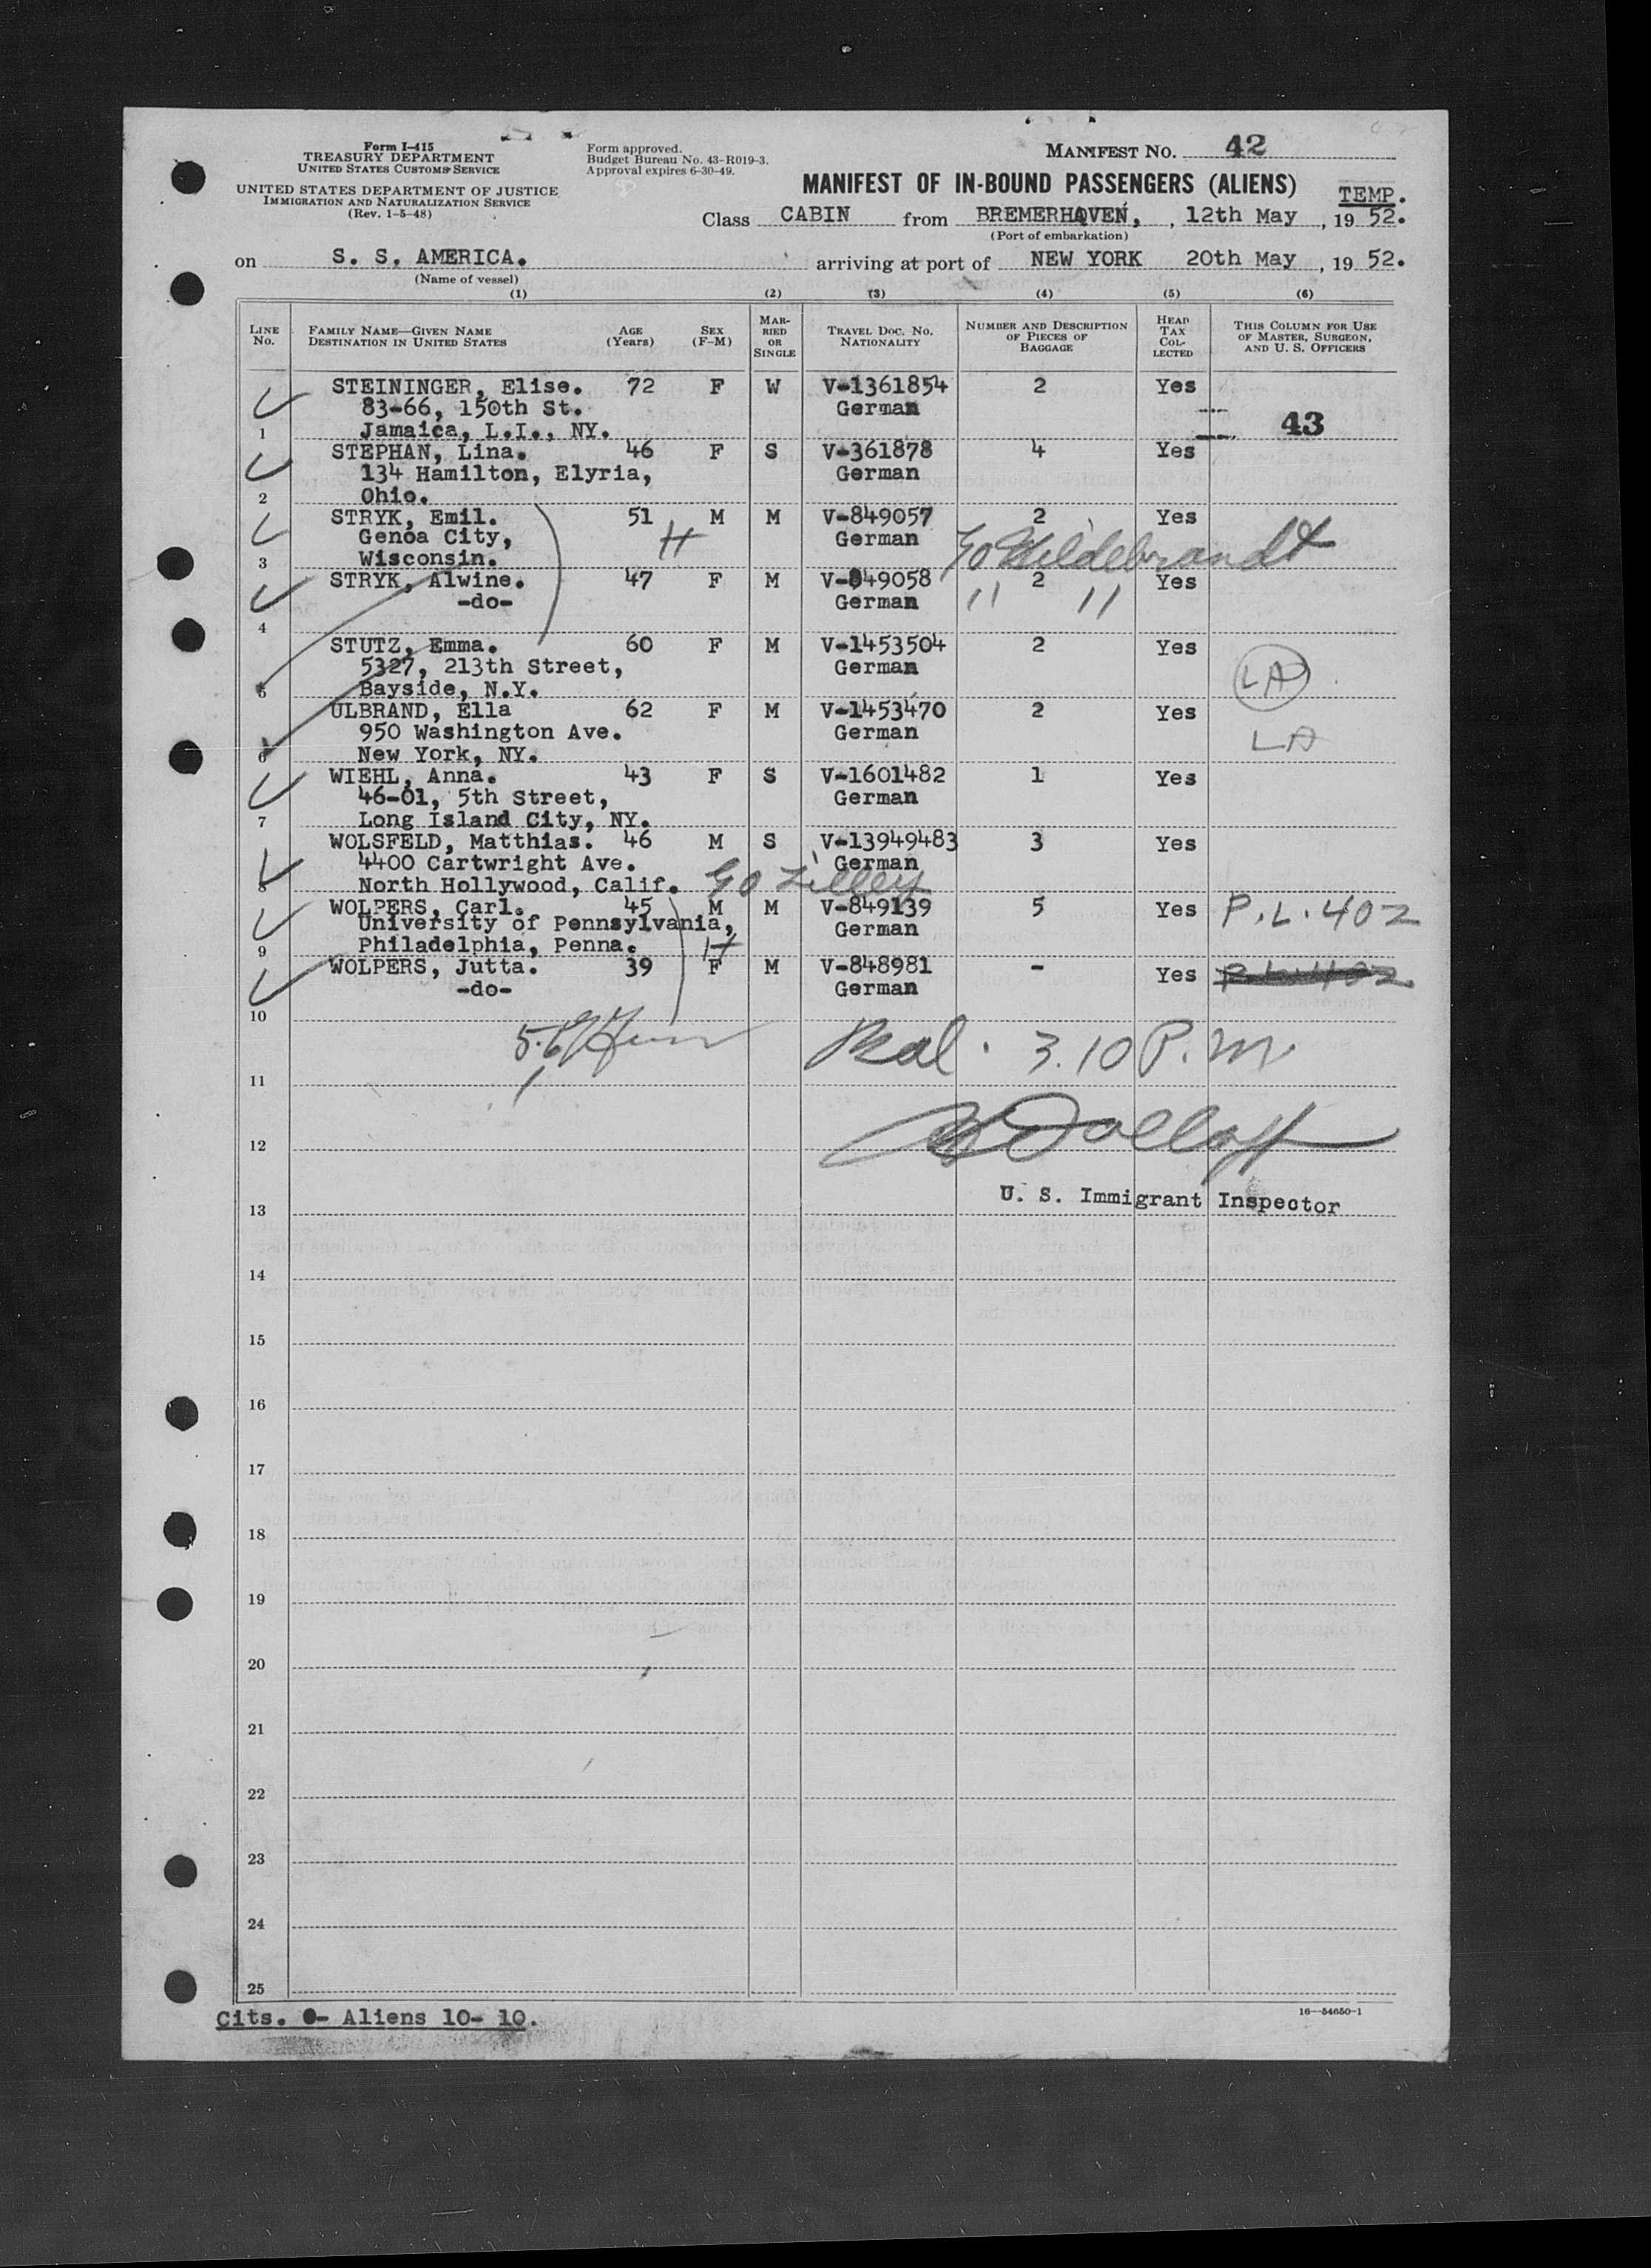 Form I-415
TREASURY DEPARTMENT
UNITED STATES CUSTOMS SERVICE
UNITED STATES DEPARTMENT OF JUSTICE
IMMIGRATION AND NATURALIZATION SERVICE
(Rev. 1-5-48)
Form approved.
Budget Bureau No. 43-R019-3.
Approval expires 6-30-49.
MANIFEST NO. 42
MANIFEST OF IN-BOUND PASSENGERS (ALIENS)
TEMP.
Class CABIN from BREMERHAVEN, , 12th May , 19 52.
(Port of embarkation)
on S. S. AMERICA. arriving at port of NEW YORK 20th May , 19 52.
(Name of vessel)
(1) (2) (3) (4) (5) (6)
LINE NO. FAMILY NAME—GIVEN NAME DESTINATION IN UNITED STATES AGE (Years) SEX (F-M) MARRIED OR SINGLE TRAVEL DOC. NO. NATIONALITY NUMBER AND DESCRIPTION OF PIECES OF BAGGAGE HEAD TAX COLLECTED THIS COLUMN FOR USE OF MASTER, SURGEON, AND U. S. OFFICERS
STEININGER, Elise. 72 F W V-1361854 2 Yes
83-66, 150th St. German
1 Jamaica, L.I., NY. 43
STEPHAN, Lina. 46 F S V-361878 4 Yes
134 Hamilton, Elyria, German
2 Ohio.
STRYK, Emil. 51 M M V-849057 2 Yes
Genoa City, H German Go Hildebrandt
3 Wisconsin.
STRYK, Alwine. 47 F M V-849058 2 Yes
-do- German " "
4
STUTZ, Emma. 60 F M V-1453504 2 Yes
5327, 213th Street, German LA
5 Bayside, N.Y.
ULBRAND, Ella 62 F M V-1453470 2 Yes
950 Washington Ave. German LA
6 New York, NY.
WIEHL, Anna. 43 F S V-1601482 1 Yes
46-01, 5th Street, German
7 Long Island City, NY.
WOLSFELD, Matthias. 46 M S V-13949483 3 Yes
4400 Cartwright Ave. German
8 North Hollywood, Calif. Go Lilley
WOLPERS, Carl. 45 M M V-849139 5 Yes P.L.402
University of Pennsylvania, German
9 Philadelphia, Penna. H
WOLPERS, Jutta. 39 F M V-848981 - Yes P.L.402
-do- German
10
3.10 P.M
11
12
U. S. Immigrant Inspector
13
14
15
16
17
18
19
20
21
22
23
24
25
Cits. 0- Aliens 10- 10.
16—54650-1